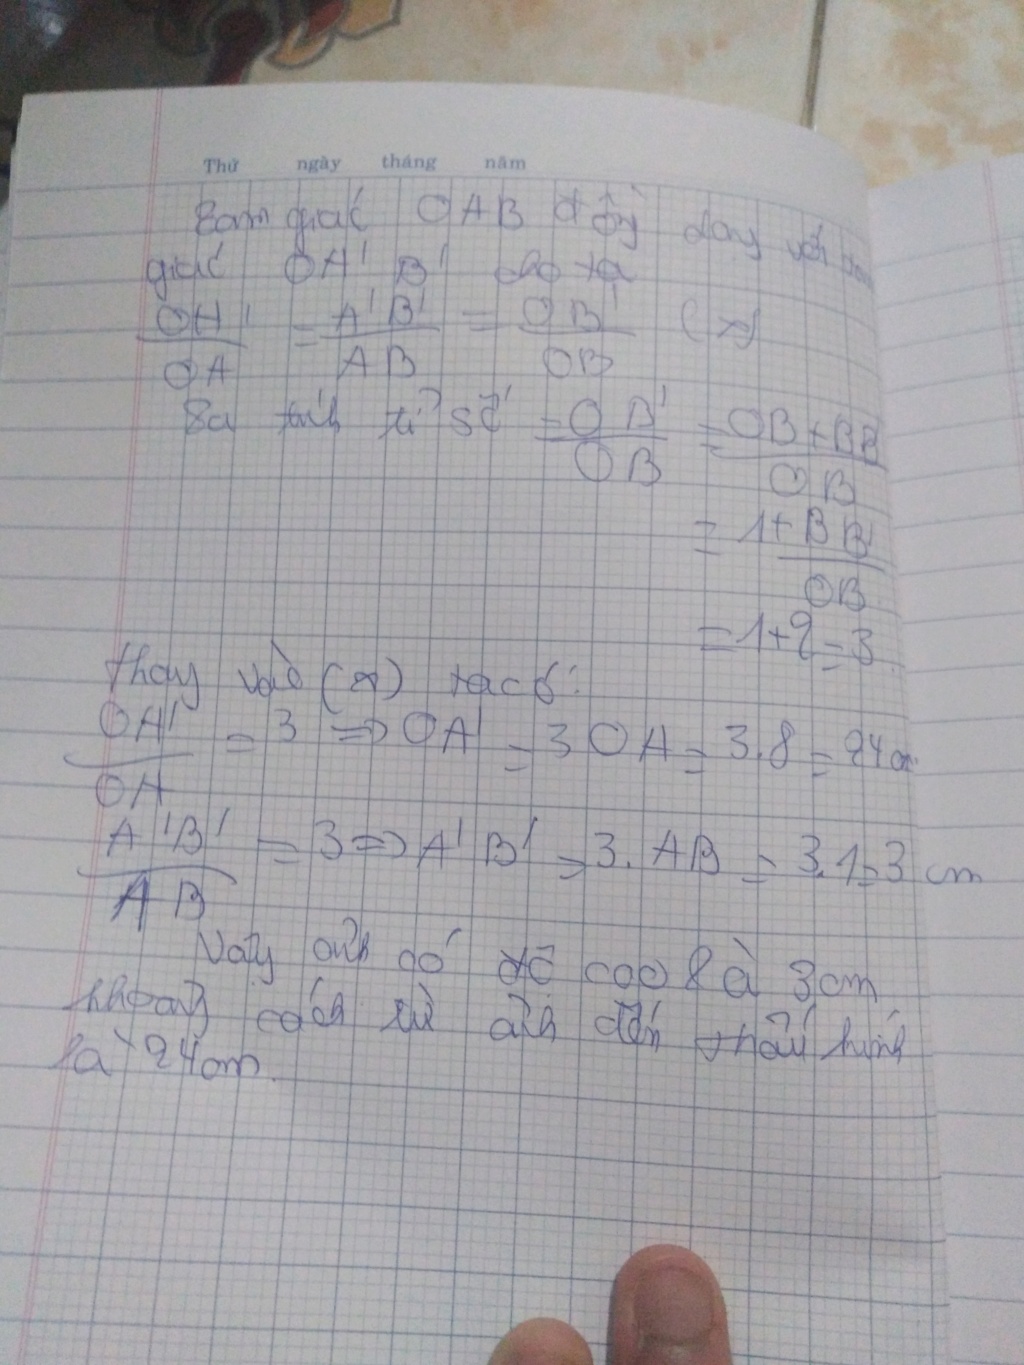 Thứ ngày tháng năm
Tam giác OAB đồng dạng với tam
giác OA'B' cho ta
OA'/OA = A'B'/AB = OB'/OB (*)
Ta tính tỉ số = OB'/OB = OB+BB'/OB
= 1+BB'/OB
= 1+2=3
thay vào (*) ta có:
OA'/OA = 3 => OA' = 3OA = 3.8 = 24cm
A'B'/AB = 3 => A'B' = 3.AB = 3.1=3 cm
Vậy ảnh có độ cao là 3cm
khoảng cách từ ảnh đến thấu kính
là 24cm